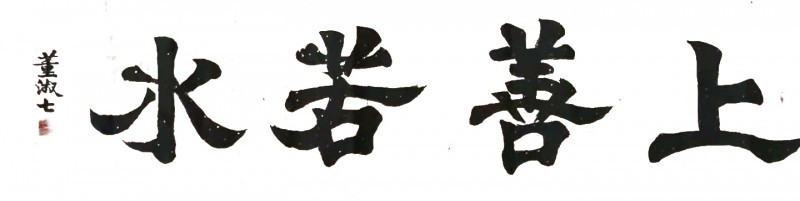 上善若水
董淑七